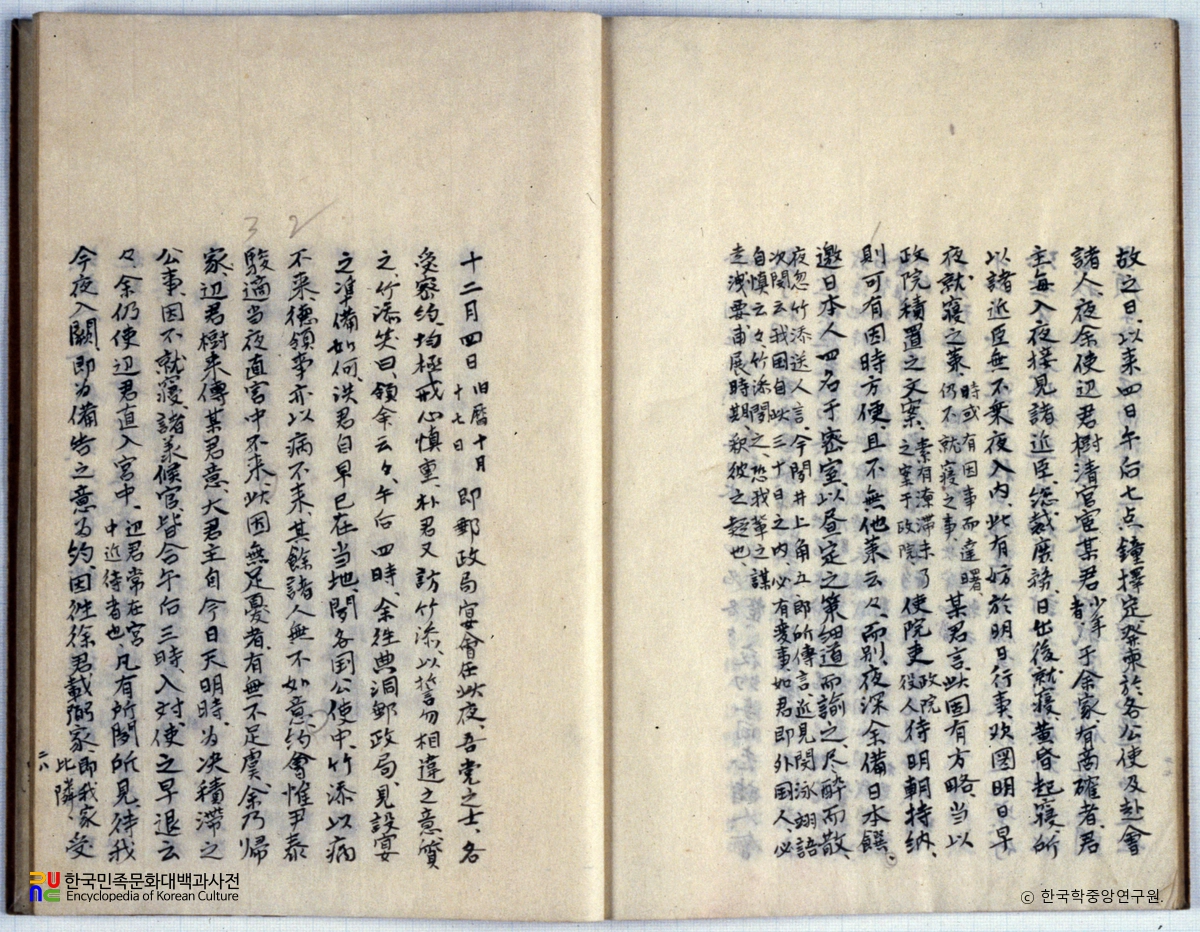 故之日、以来四日午后七点鐘擇定発柬於各公使及赴會
諸人夜余使辺君樹清宮宦某君少年者于余家有商確者、君
主每入夜接見諸近臣、総裁庶務、日出後就寝、黄昏起寝、所
以諸近臣無不乗夜入内、此有妨於明日行事、欲図明日早
夜就寝之策時或有因事而達曙、仍不就寝之事、某君言、此固有方略、当以
政院積置之文案、素有潦滞未乃之案于政院、使院吏政院役人待明朝持納、
則可有因時方便、且不無他策云々、而別、夜深余備日本饌
邀日本人四名于密室、以昼定之策細道而諭之、尽酔而散、
夜忽竹添送人言、今聞井上角五郎所傳言、近見閔泳翊語
次聞云我国自此三十日之内、必有変事、如君即外国人、必
自慎云々、竹添聞之、恐我輩之謀
走洩要甫展時期、釈彼之疑也、
十二月四日旧曆十月十七日即郵政局宴會在此夜、吾党之士、各
受密約、均極戒心慎重、朴君又訪竹添、以誓勿相違之意質
之、竹添笑曰、領余云々、午后四時、余往典洞郵政局、見設宴
之準備如何、洪君自早已在当地、聞各国公使中、竹添以病
不来、德領事亦以病不来、其餘諸人無不如意、約會惟尹泰
駿適当夜直宮中不来、此固無足憂者、有無不足虞、余乃帰
家、辺君樹来傳某君意、大君主自今日天明時、为决積滞之
公事、因不就寝、諸承候官、皆令午后三時、入対使之早退云
々、余仍使辺君直入宮中、辺君常在宮中近待者也、凡有所聞所見、待我
今夜入闕、即为備告之意为約、因往徐君載弼家、即我家比隣、受
二八
3 2
한국민족문화대백과사전
Encyclopedia of Korean Culture
ⓒ 한국학중앙연구원.